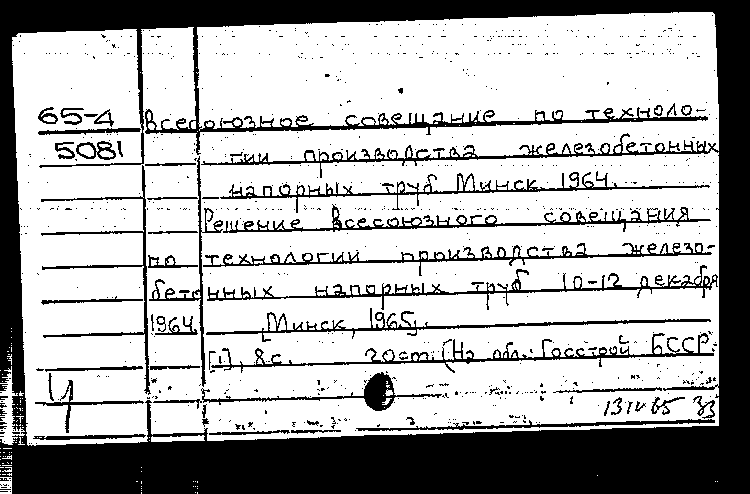 65-4 Всесоюзное совещание по техноло-
5081 гии производства железобетонных
напорных труб. Минск. 1964.
Решение Всесоюзного совещания
по технологии производства железо-
бетонных напорных труб 10-12 декабря
1964. [Минск, 1965].
[1], 8 с. 20 см. (На обл.: Госстрой БССР.
13 IV 65